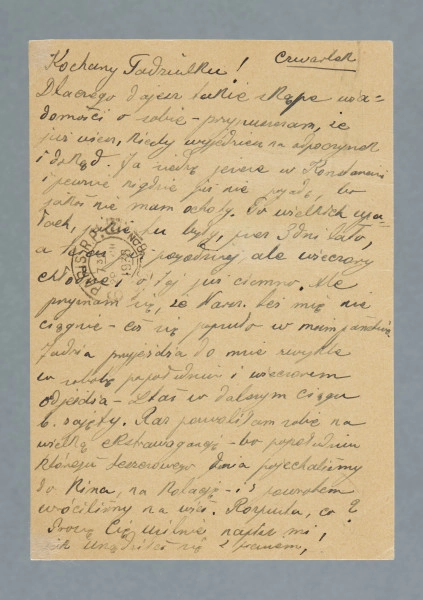 Czwartek
Kochany Tadziulku!
Dlaczego dajesz takie skąpe wia-
domości o sobie - przypuszczam, że
już wiesz, kiedy wyjedziesz na odpoczynek
i dokąd. Ja siedzę jeszcze w
i pewnie nigdzie już nie pojadę, bo
jakoś nie mam ochoty. Po wielkich upa-
łach, jakie tu były, przez 3 dni lało,
a teraz pogodniej, ale wieczory
chłodne, i o 7ej już ciemno. Ale
przyznam się, że Warsz. też mię nie
ciągnie - coś się popsuło w mem państwie
Jadzia przyjeżdża do mnie zwykle
w sobotę popołudniu i wieczorem
odjeżdża - Staś w dalszym ciągu
b. zajęty. Raz pozwoliłam sobie na
wielką ekstrawagancję - bo popołudniu
któregoś deszczowego dnia pojechaliśmy
do Kina, na Kolację - i z powrotem
wróciliśmy na wieś. Rozpusta, co?
Proszę Cię usilnie napisz mi,
jak urządziłeś się z praniem,